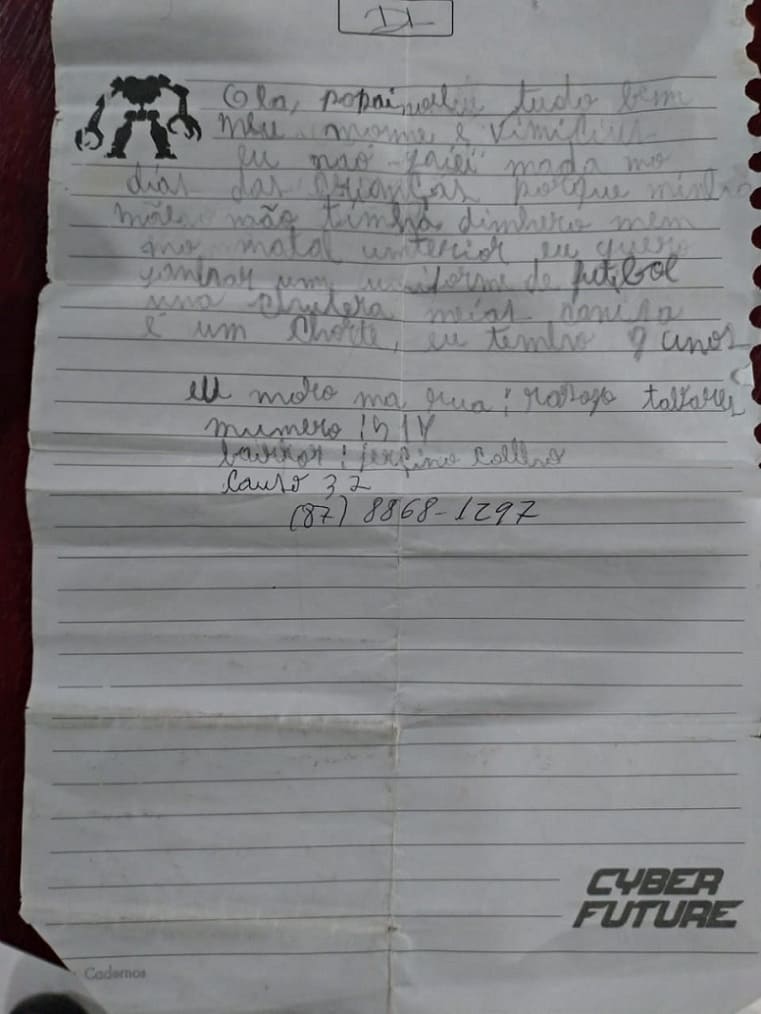 II
Ola, popai noeleu tudo bem
meu nome e vinicius
eu nao gaiei nada no
dias das crianças porque minha
mãe não tinha dinhero nem
no natal unterior eu quero
ganhar um uniforme de futebol
uma chutera meias camisa
e um chorte, eu tenho 9 anos
eu moro na rua : raposo tavares
numero :
bairror : jercino coelho
8868-1297
(87)
CYBER
FUTURE
Cadernos